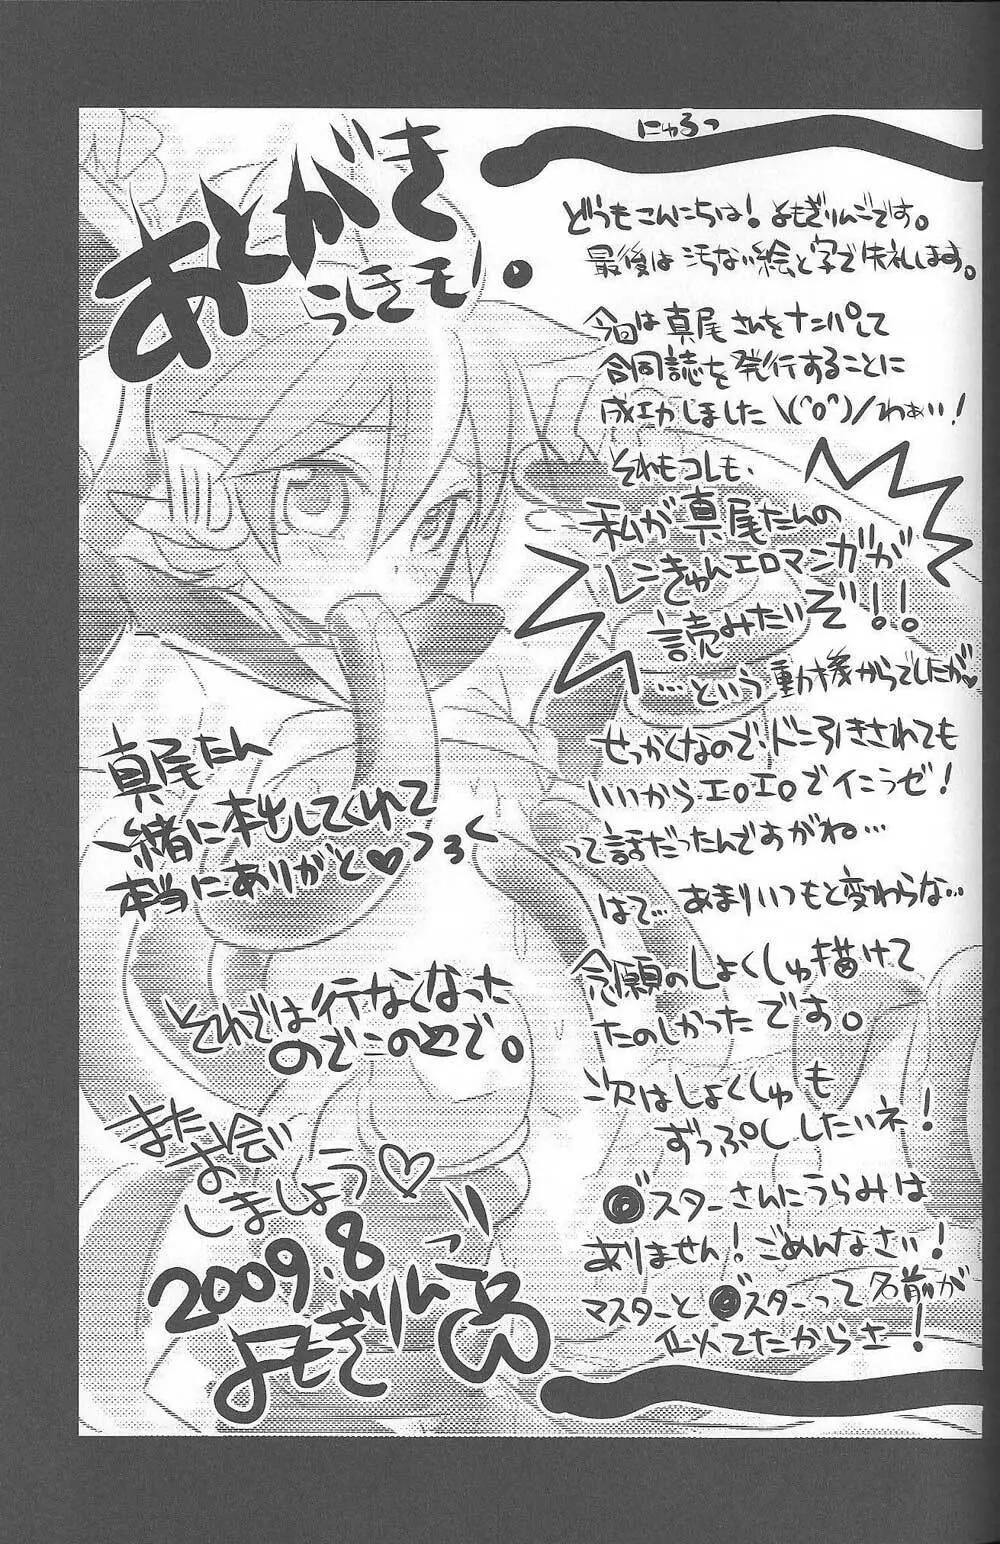 あとがき
らしきモノ。
にゅるっ
どうもこんにちは！よもぎりんごです。
最後は汚ない絵と字で失礼します。
今回は真尾さんをナンパして
合同誌を発行することに
成功しました \(^o^)/わぁい！
それもコレも、
私が真尾たんの
レンきゅんエロマンガが
読みたいぞ!!!
…という動機からでしたが♥
せっかくなので、ドン引きされても
いいからエロエロでイこうゼ！
って話だったんですがね…
はて… あまりいつもと変わらな…
念願のしょくしゅ描けて
たのしかったです。
次はしょくしゅも
ずっぷししたいネ！
スターさんにうらみは
ありません！ごめんなさい！
マスターと スターって名前が
似てたからさ！
真尾たん
一緒に本出してくれて
本当にありがと♥
それでは行なくなった
のでこのへんで。
またお会い
しましょう♡
2009.8
よもぎりんご